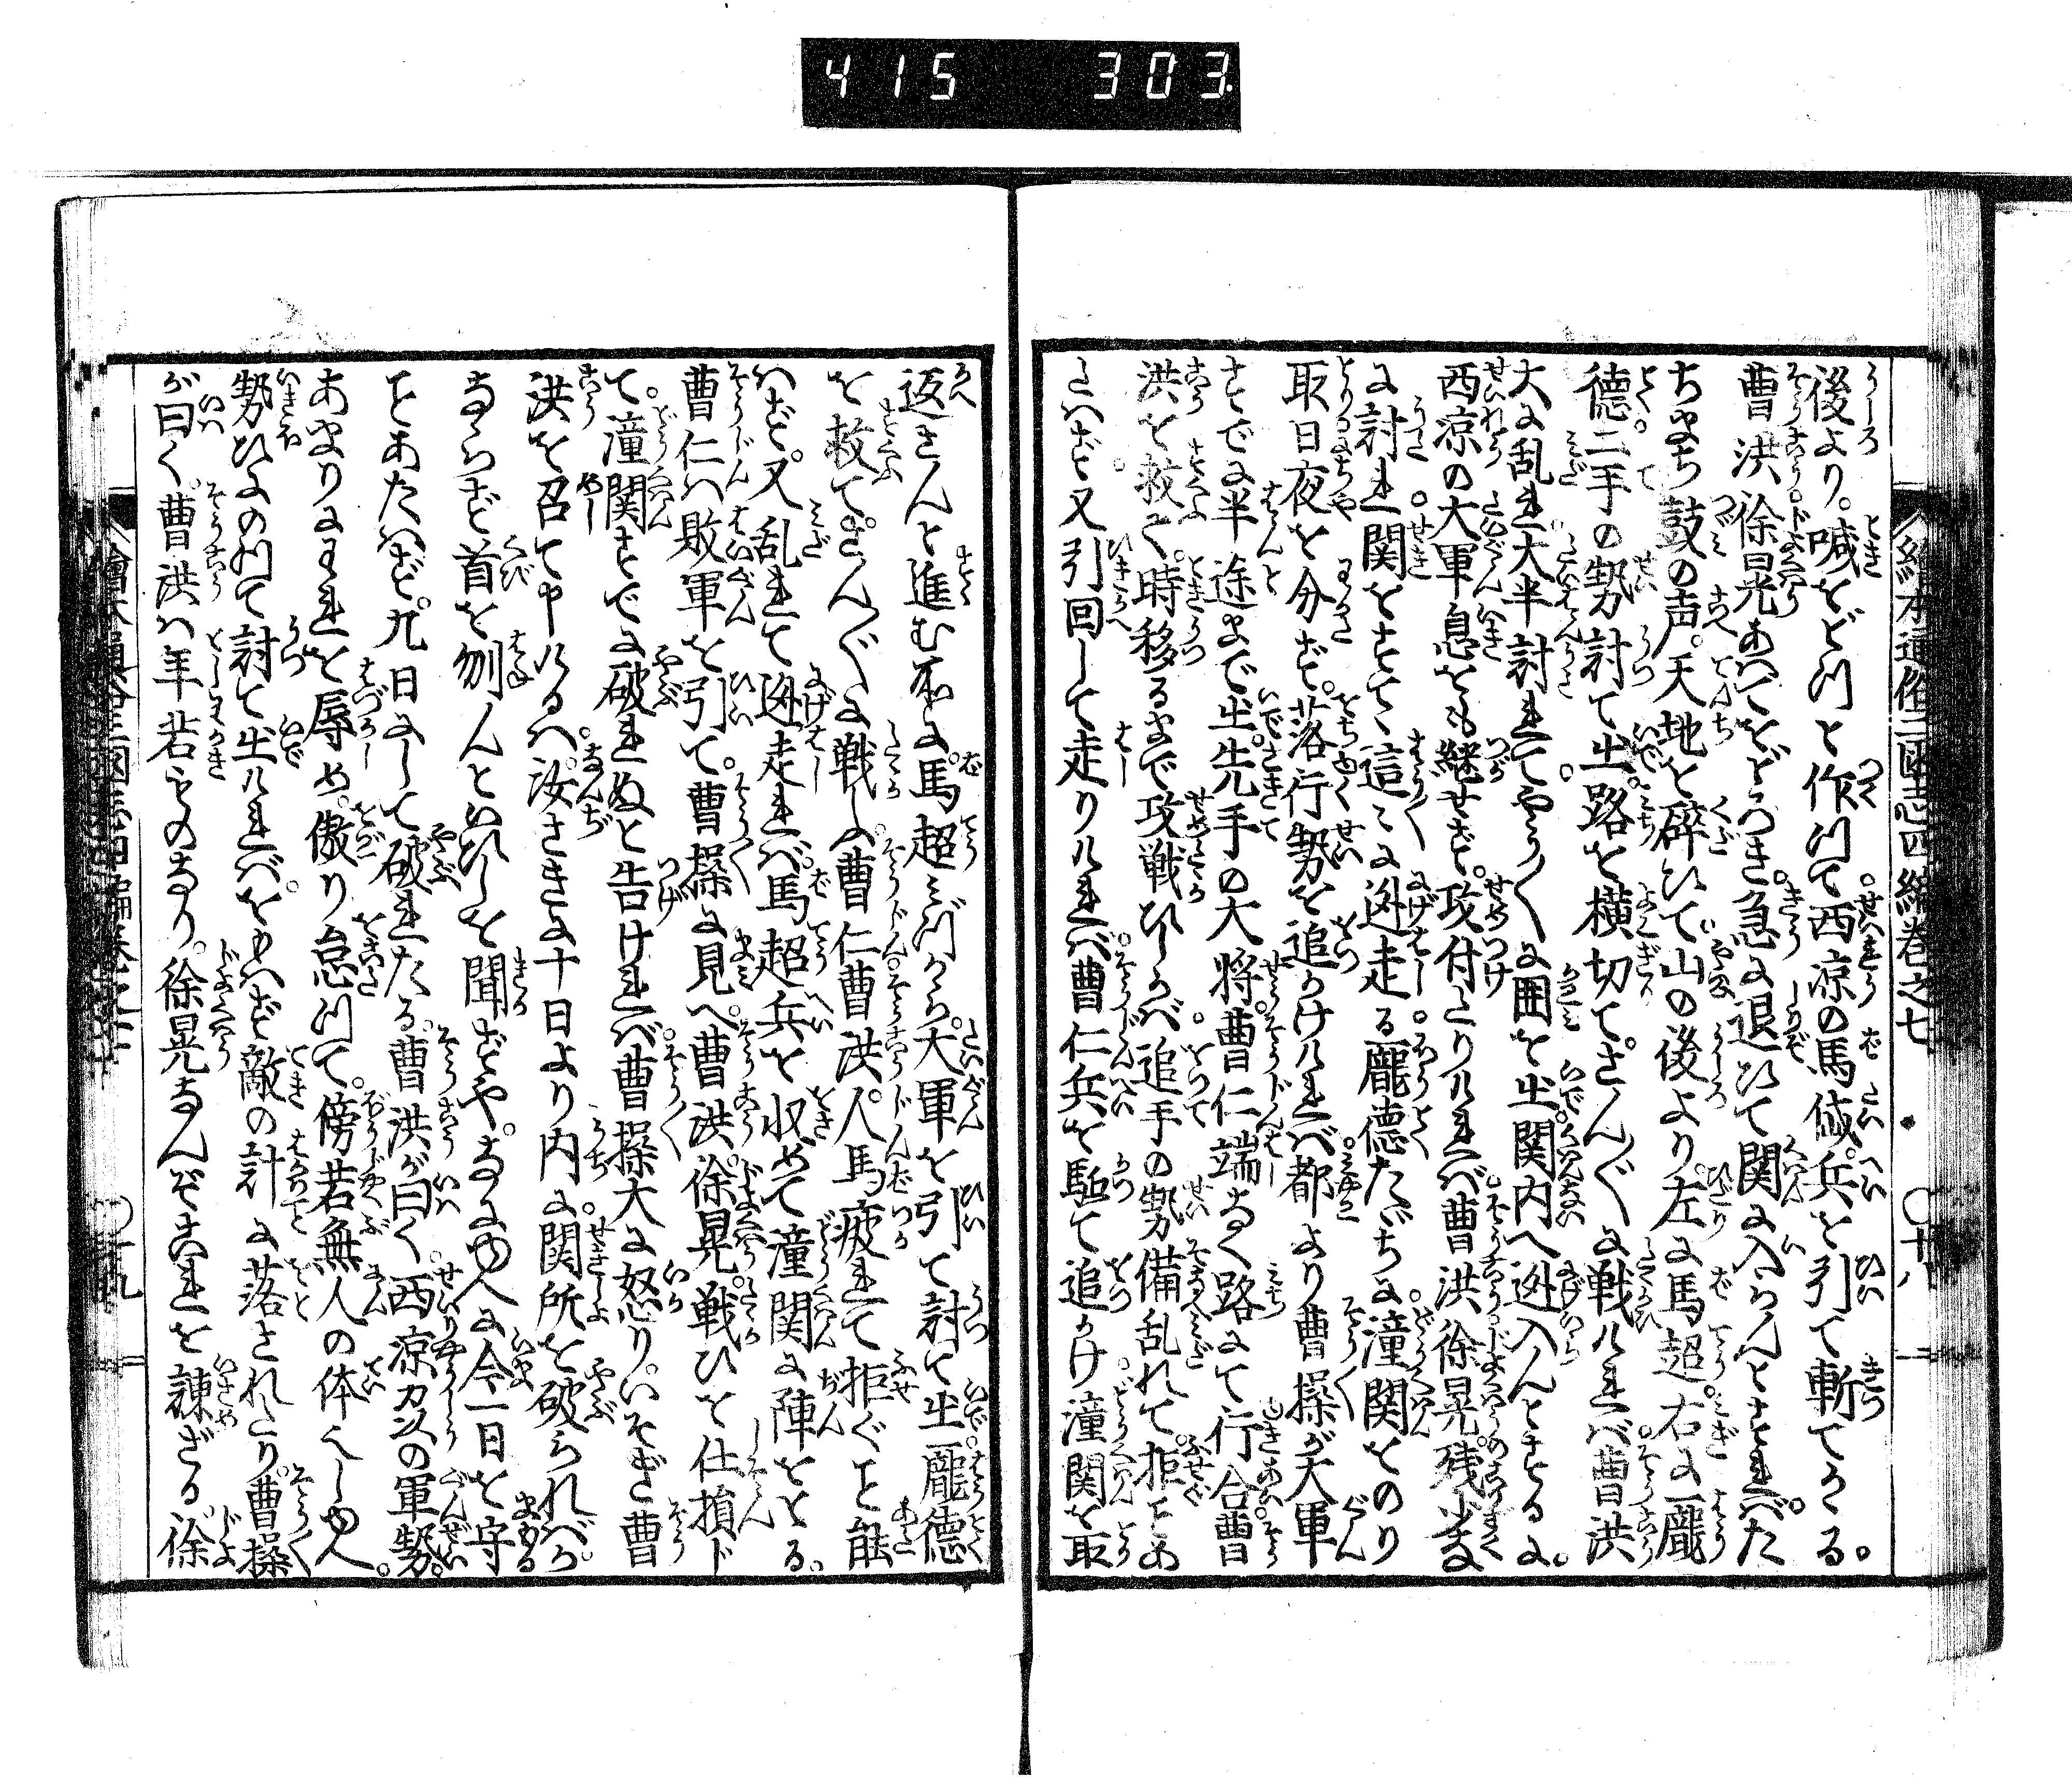 415 303
繪本通俗三国志四編巻之七 〇十八
後より。喊をどつと作つて西凉の馬岱。兵を引て斬てくる。
曹洪徐晃あへてをどろき。急に退ひて関に入らんとすれば。た
ちまち鼓の声。天地を碎ひて。山の後より。左に馬超。右に龐
徳。二手の勢討て出。路を横切て。さん〲に戦ければ曹洪
大に乱れ。大半討れて。やう〱に囲を出。関内へ迯入んとするに。
西凉の大軍息をも継せず。攻付たりければ曹洪徐晃。残少な
に討れ。関をすてゝ這〻に迯走る。龐徳たゞちに潼関をのり
取日夜を分ず。落行勢を追かけければ。都より曹操が大軍
すでに半途まで出。先手の大将。曹仁端なく路にて行合曹
洪を救て。時移るまで攻戦ひしかば。追手の勢備乱れて。拒ことあ
たはず。又引回して走りければ。曹仁兵を駈て追かけ。潼関を取
返さんと進む所に。馬超みづから。大軍を引て討て出。龐徳
を救て。さん〲に戦しに。曹仁曹洪。人馬疲れて拒ぐこと能
はず。又乱れて迯走れば。馬超兵を収めて潼関に陣をとる。
曹仁は敗軍を引て。曹操に見へ。曹洪。徐晃。戦ひを仕損じ
て。潼関すでに破れぬと告ければ。曹操大に怒り。いそぎ曹
洪を召て申けるへ。汝さきに十日より内に。関所を破られば。
ならず首を刎んといひしを聞ずや。なにゆへに今一日を守
ことあたはず。九日にして破れたる。曹洪が曰く。西凉刄以の軍勢。
あまりにわれを辱め。傲り怠つて。傍若無人の体へしゆへ。
勢ひよのつて討て出ければ。をもはず敵の計に落されたり。曹操
が曰く。曹洪は年若ものなり。徐晃なんぞこれを諌ざる。徐
繪本通俗三國志四編巻之七 〇十九